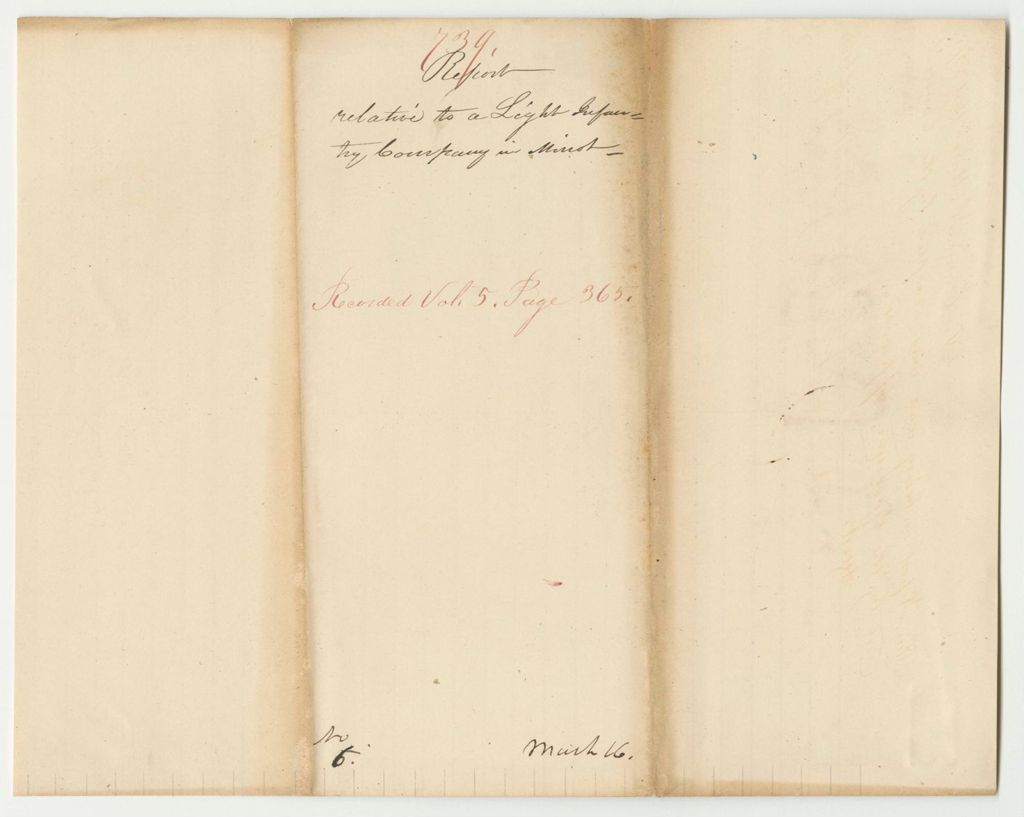 739.
Report
relative to a Light Infan=
try Company in Minot_
Recorded Vol. 5. Page 365.
No
6.
March 16.